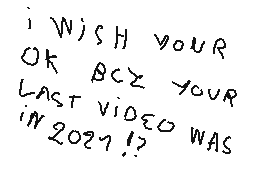 i WiSH YOUR
OK BCZ YOUR
LAST ViDEO WAS
iN 2021 !?